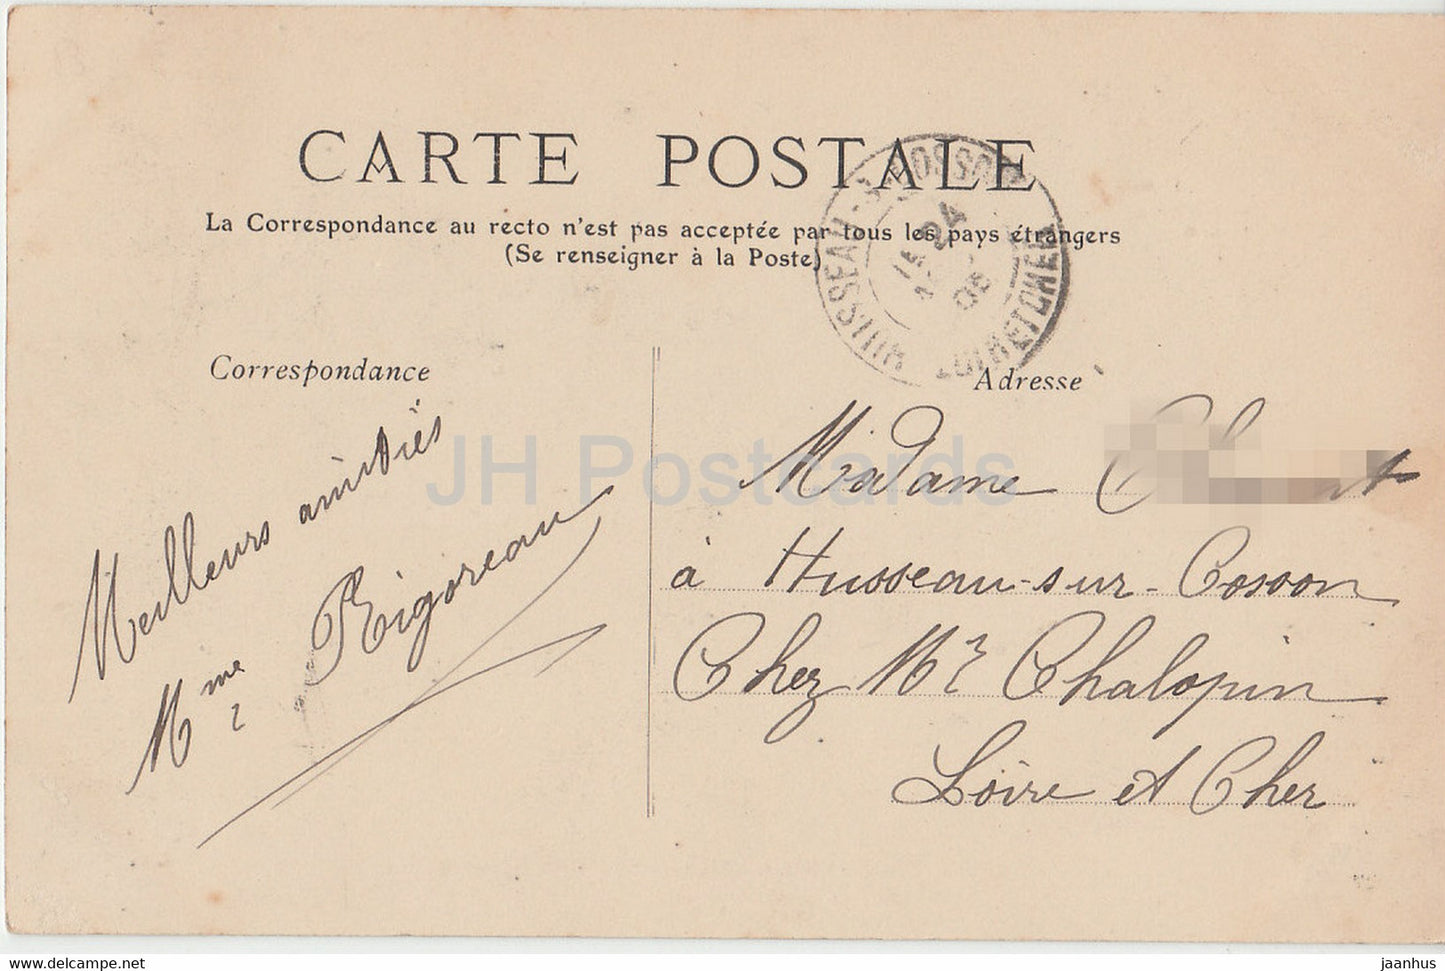 CARTE POSTALE
La Correspondance au recto n'est pas acceptée par tous les pays étrangers
(Se renseigner à la Poste)
24
08
LOIR-ET-CHER
Correspondance
Adresse
Meilleurs amitiés
Mme Rigoreau
Madame
à Husseau-sur-Cosson
Chez Mr Chalopin
Loire et Cher
JH Postcards
www.delcampe.net
jaanhus